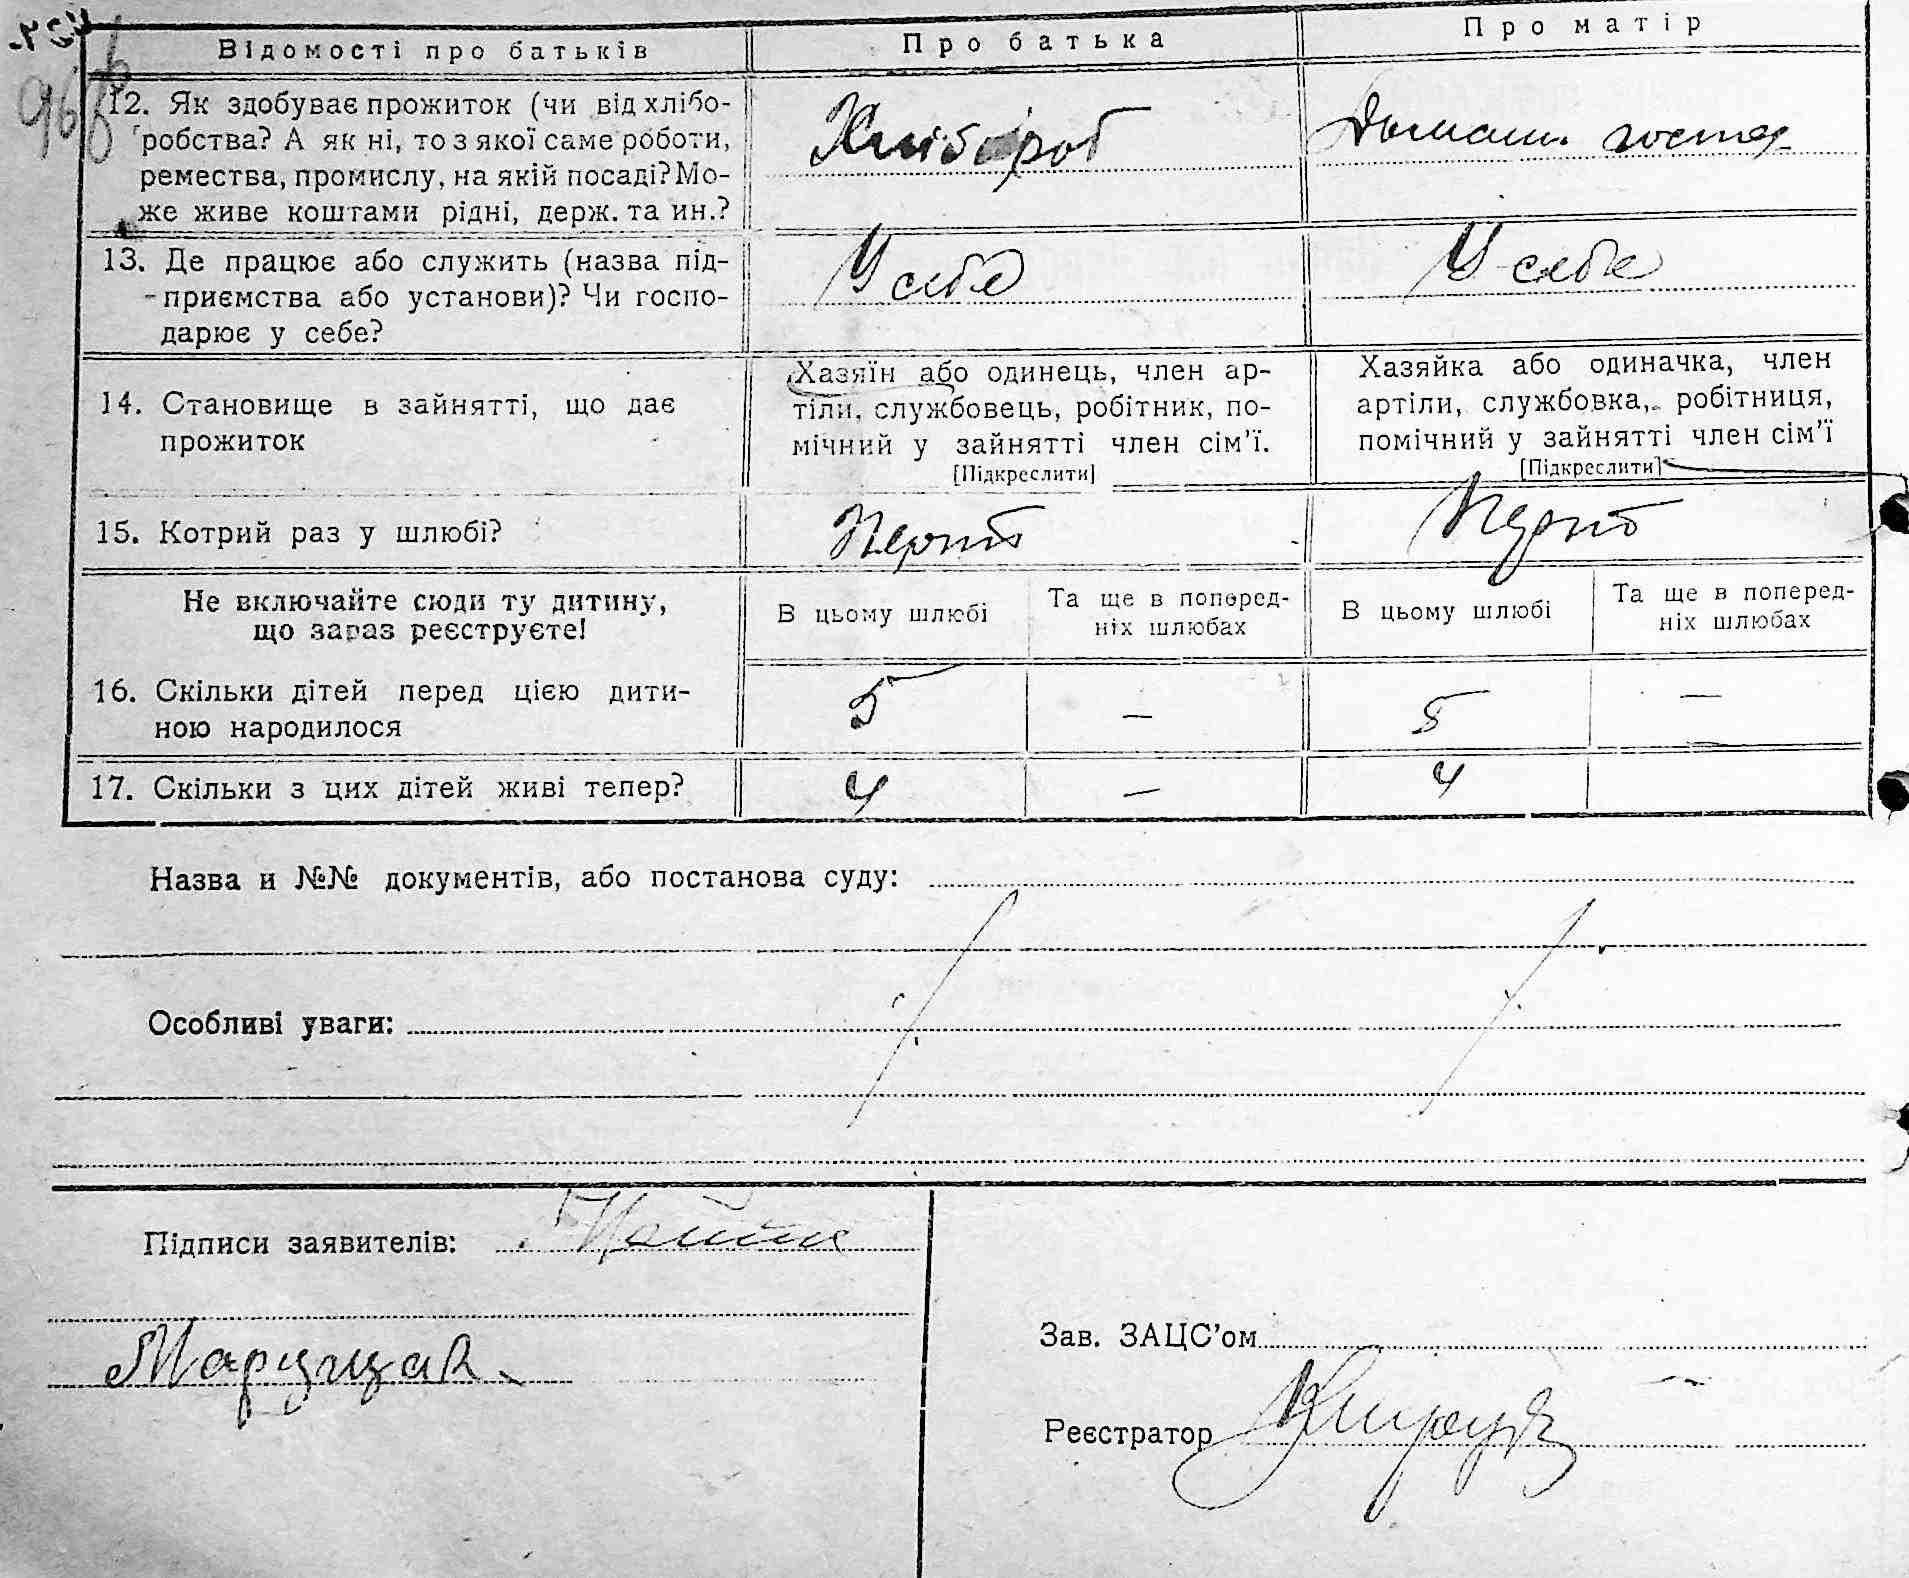 Відомості про батьків
Про батька
Про матір
12. Як здобуває прожиток (чи від хлібо-
робства? А як ні, то з якої саме роботи,
ремества, промислу, на якій посаді? Мо-
же живе коштами рідні, держ. та ин.?
Хлібороб
13. Де працює або служить (назва під-
приємства або установи)? Чи госпо-
дарює у себе?
У себе
У себе
14. Становище в зайнятті, що дає
прожиток
Хазяїн або одинець, член ар-
тіли, службовець, робітник, по-
мічний у зайнятті член сім’ї.
[Підкреслити]
Хазяйка або одиначка, член
артіли, службовка, робітниця,
помічний у зайнятті член сім’ї
[Підкреслити]
15. Котрий раз у шлюбі?
Не включайте сюди ту дитину,
що зараз реєструєте!
В цьому шлюбі
Та ще в поперед-
ніх шлюбах
В цьому шлюбі
Та ще в поперед-
ніх шлюбах
16. Скільки дітей перед цією дити-
ною народилося
5 — 5 —
17. Скільки з цих дітей живі тепер?
4 — 4
Назва и №№ документів, або постанова суду:
Особливі уваги:
Підписи заявителів:
Зав. ЗАЦС’ом
Реєстратор